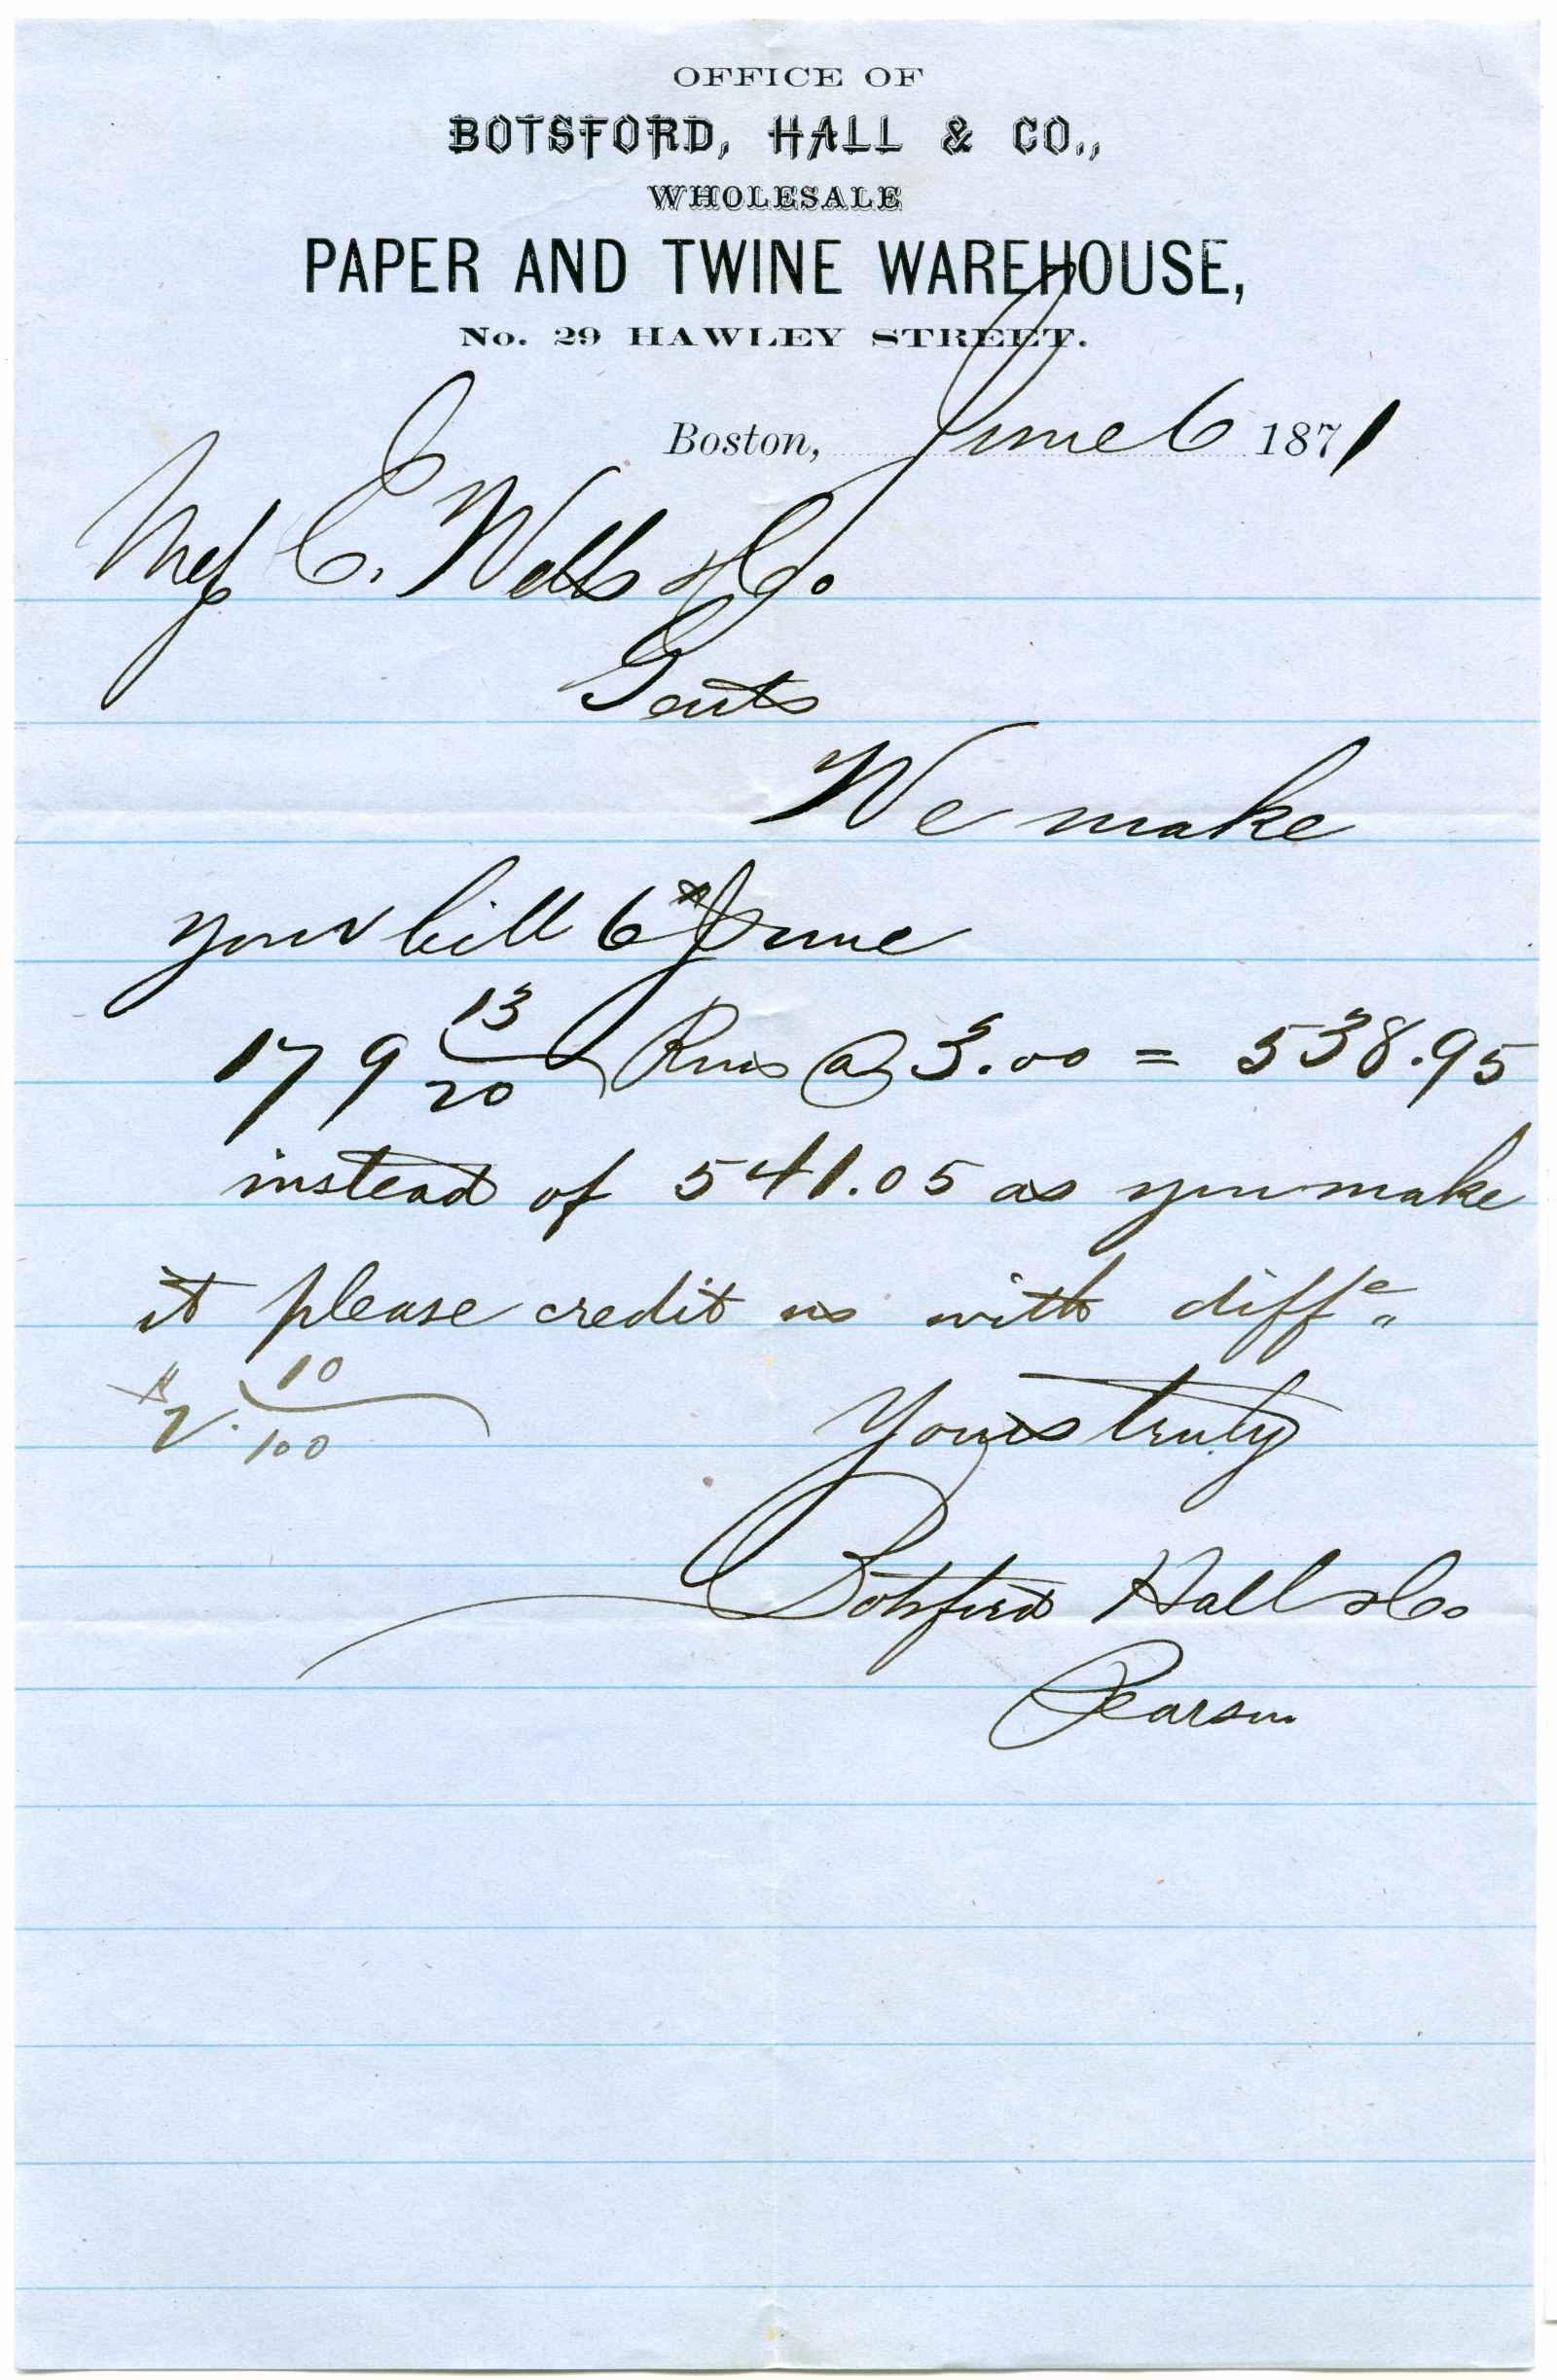 OFFICE OF
BOTSFORD, HALL & CO.,
WHOLESALE
PAPER AND TWINE WAREHOUSE,
No. 29 HAWLEY STREET.
Boston, June 6 1871
Mess C. Wells & Co
Gents
We make
your bill 6th June
179 13/20 Rms @ 3.00 = 538.95
instead of 541.05 as you make
it please credit us with diffe"
$2. 10/100
Yours truly
Botsford Hall & Co
Pearson